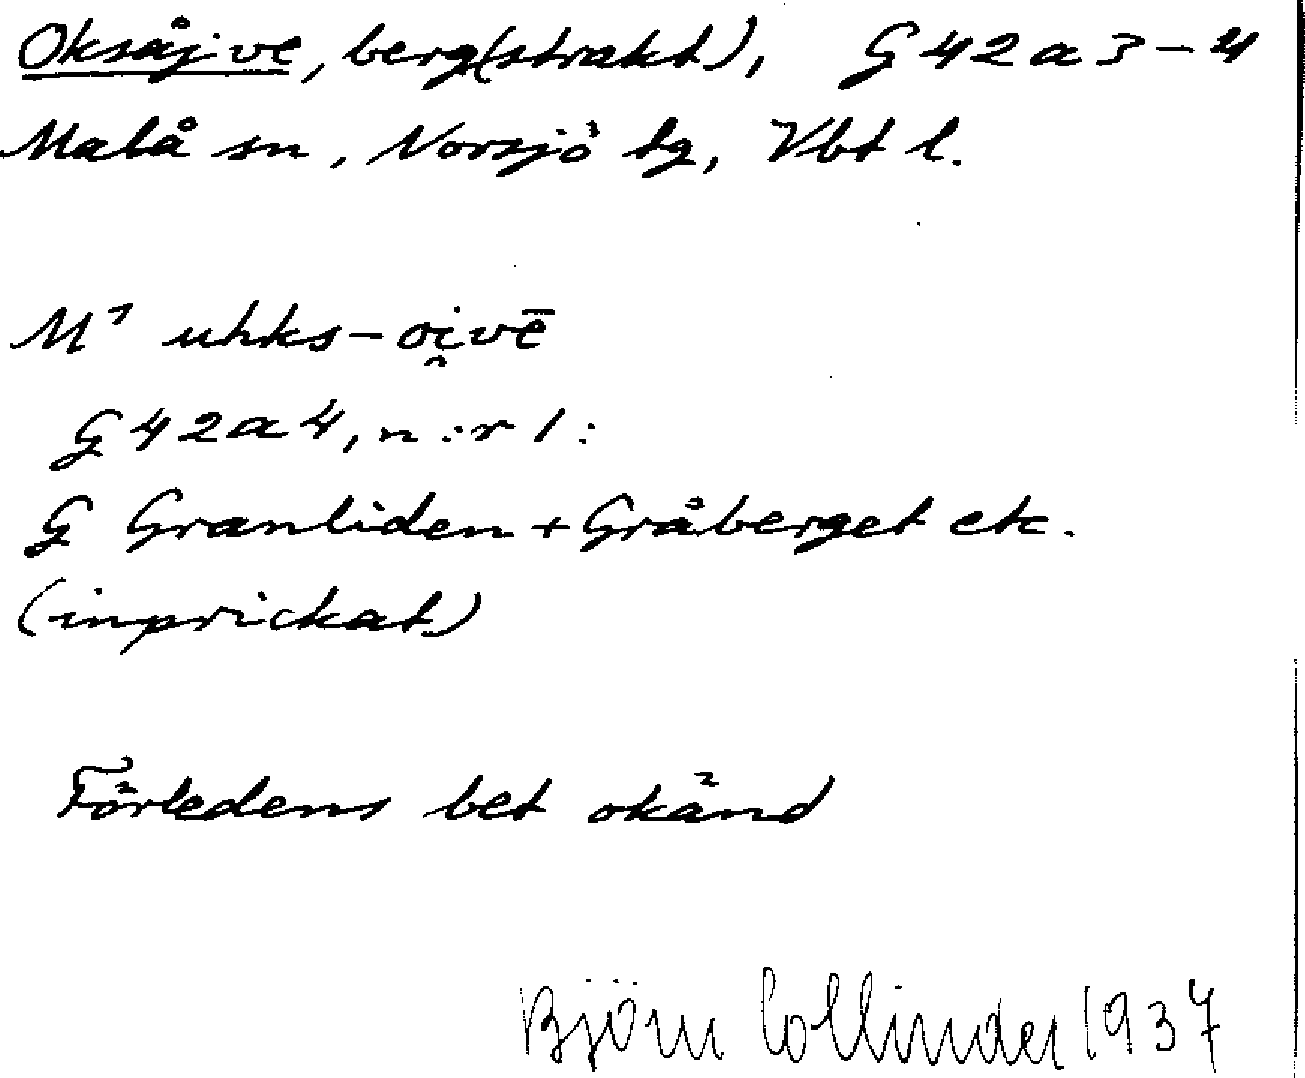 Oksåjve, berg(strakt), G 42 a 3-4
Malå sn, Norsjö tg, Vbt l.
M¹ uhks-oi̯vē
G 42 a 4, n:r 1:
G Granliden + Gråberget etc.
(inprickat)
Förledens bet okänd
Björn Collinder 1937